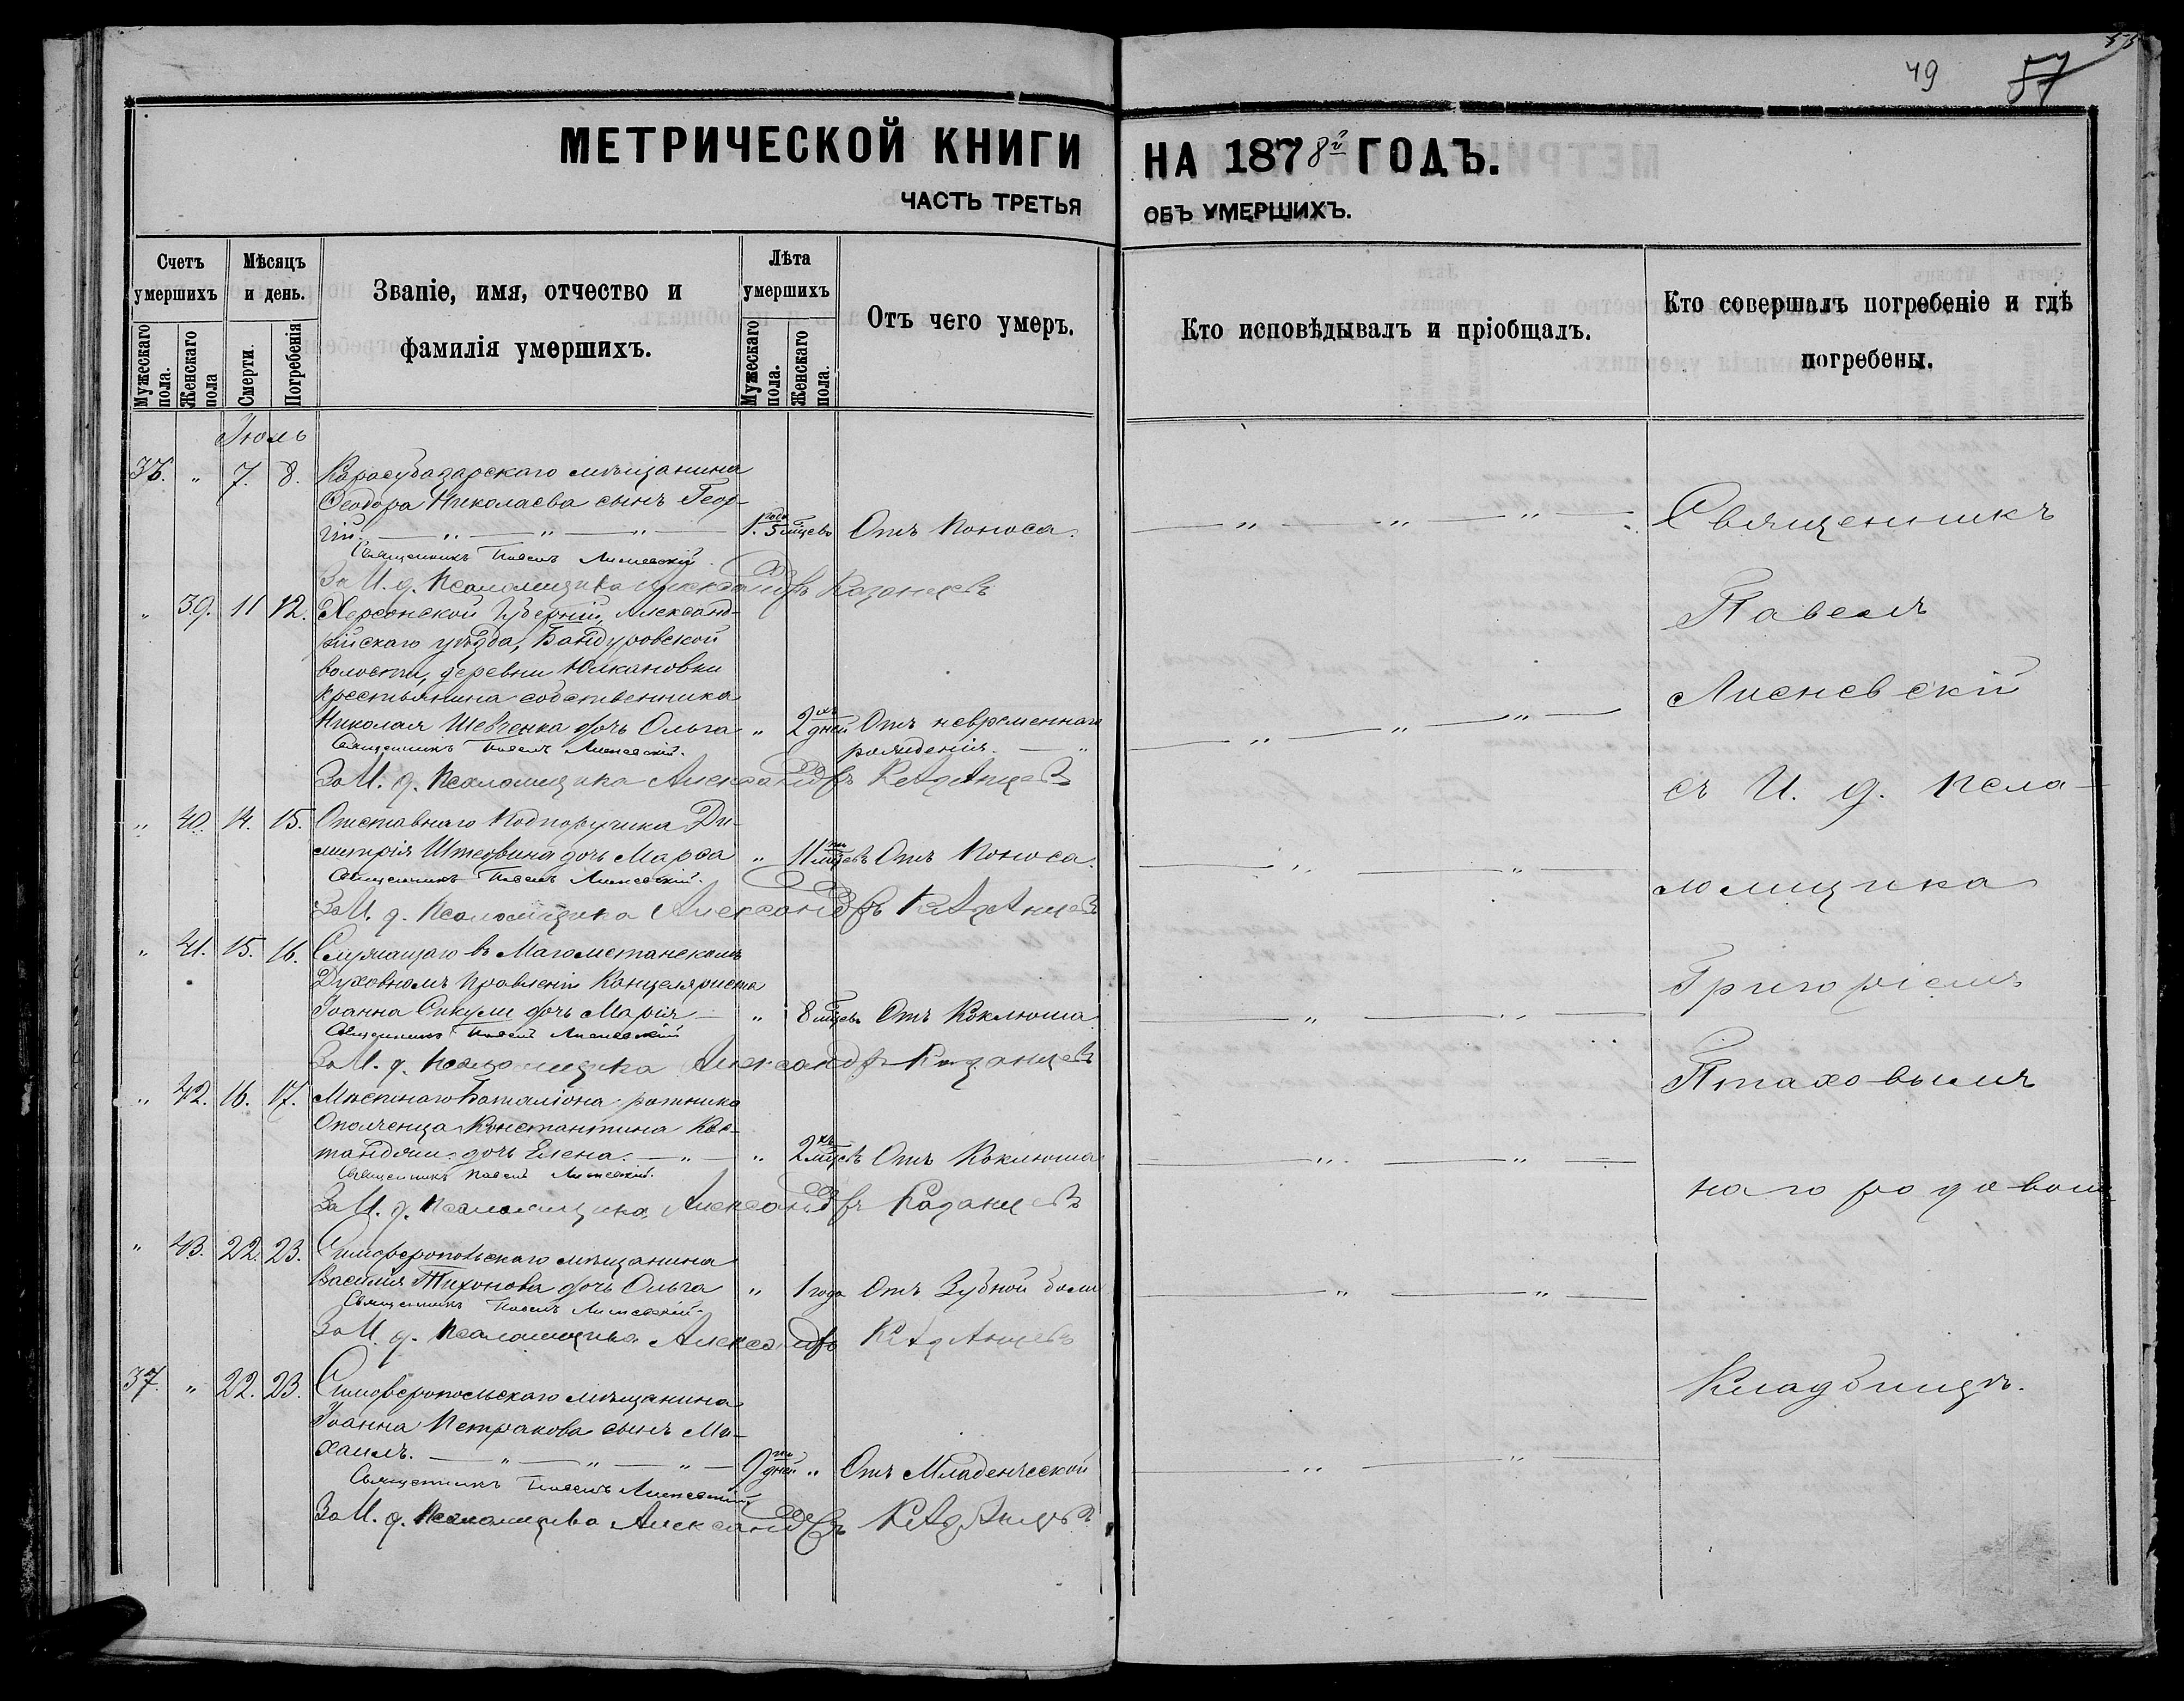 49 57
МЕТРИЧЕСКОЙ КНИГИ НА 1878й ГОДЪ.
ЧАСТЬ ТРЕТЬЯ ОБЪ УМЕРШИХЪ.
Счетъ умершихъ
Мужескаго пола.
Женскаго пола
Мѣсяцъ и день.
Смерти.
Погребенія
Званіе, имя, отчество и
фамилія умершихъ.
Лѣта умершихъ
Мужескаго пола.
Женскаго пола.
Отъ чего умеръ.
Кто исповѣдывалъ и пріобщалъ.
Кто совершалъ погребеніе и гдѣ
погребены.
Іюль
36. " 7. 8. Карасубазарскаго мѣщанина
Ѳеодора Николаева сынъ Геор-
гій. — " — " — " — 1. года 5 мцевъ Отъ Поноса.
Священникъ Павелъ Лисневскій.
За И. д. Псаломщика Александръ Казанцевъ
" 39. 11 12. Херсонской Губерніи, Александ-
рійскаго уѣзда, Бандуровской
волости, деревни
крестьянина собственника
Николая Шевченка дочь Ольга " 2хъ дней Отъ невременнаго
рожденія. — "
Священникъ Павелъ Лисневскій.
За И. д. Псаломщика Александръ Казанцевъ
" 40. 14. 15. Отставнаго Подпоручика Ди-
митрія дочь Марѳа " 11ти мцевъ Отъ Поноса.
Священникъ Павелъ Лисневскій.
За И. д. Псаломщика Александръ Казанцевъ
" 41. 15. 16. Служащаго въ Магометанскомъ
Духовномъ Правленіи Канцеляриста
Іоанна дочь Марія — " 8 мцевъ Отъ Коклюша
Священникъ Павелъ Лисневскій
За И. д. Псаломщика Александръ Казанцевъ
" 42. 16. 17. Мѣстнаго Баталіона ратника
Ополченца Константина Кос-
дочь Елена. — " — " 2хъ мцевъ Отъ Коклюша
Священникъ Павелъ Лисневскій.
За И. д. Псаломщика Александръ Казанцевъ
" 43. 22. 23. Симферопольскаго мѣщанина
Василія Тихонова дочь Ольга " 1 года Отъ Зубной боли
Священникъ Павелъ Лисневскій.
За И. д. Псаломщика Александръ Казанцевъ
37. " 22. 23. Симферопольскаго мѣщанина
Іоанна Петракова сынъ Ми-
хаилъ. — " — " — " — 9ти дней " Отъ Младенческой
Священникъ Павелъ Лисневскій
За И. д. Псаломщика Александръ Казанцевъ
Священникъ
Павелъ
Лисневскій
съ И. д. Псало-
ломщика
Григоріемъ
Птаховымъ
на городовом
Кладбищѣ.